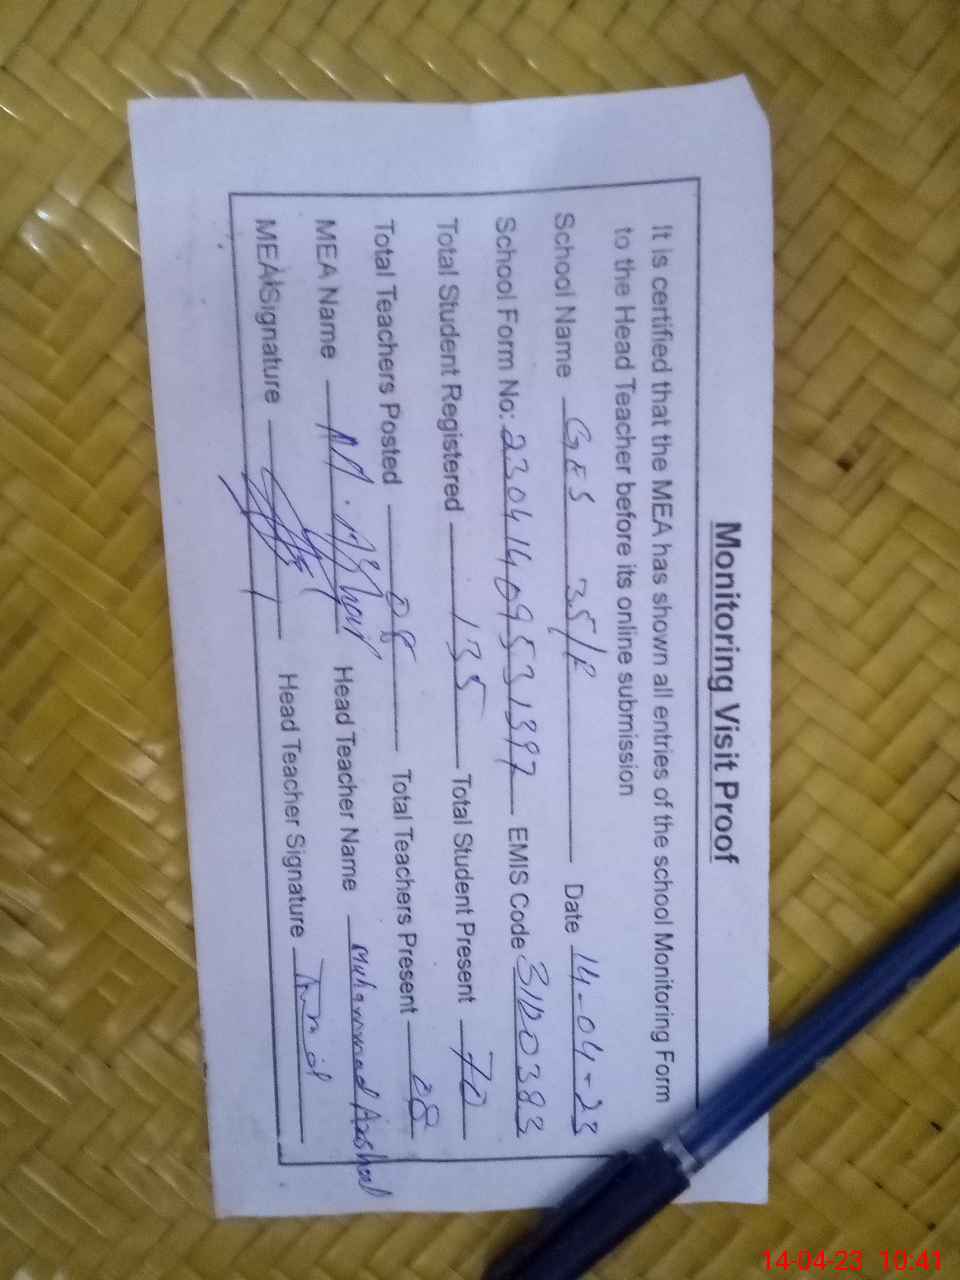 Monitoring Visit Proof
It is certified that the MEA has shown all entries of the school Monitoring Form
to the Head Teacher before its online submission
School Name GES 35/R Date 14-04-23
School Form No: 23041409531397 EMIS Code 31120383
Total Student Registered 135 Total Student Present 70
Total Teachers Posted 08 Total Teachers Present 08
MEA Name M. Head Teacher Name Muhammad Arshad
MEA Signature Head Teacher Signature
14-04-23 10:41